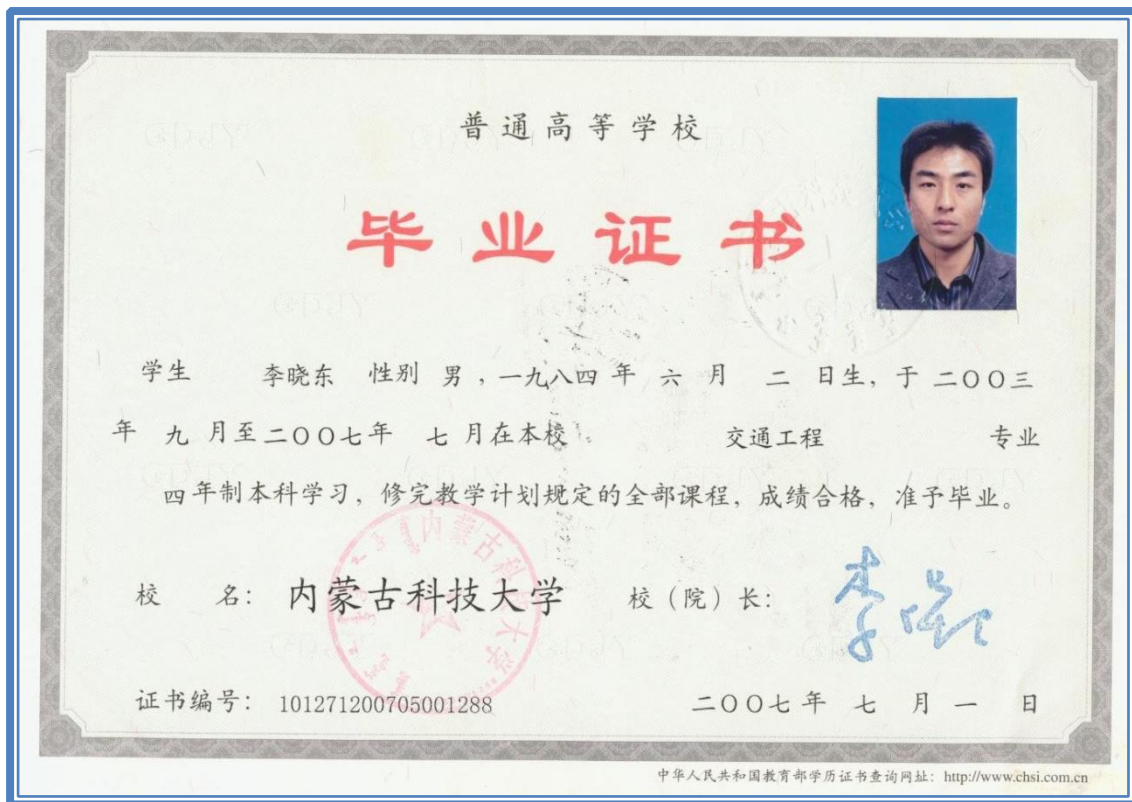 普通高等学校
毕业证书
学生 李晓东 性别 男，一九八四 年 六 月 二 日生，于 二〇〇三
年 九 月至二〇〇七年 七 月在本校 交通工程 专业
四年制本科学习，修完教学计划规定的全部课程，成绩合格，准予毕业。
校 名： 内蒙古科技大学 校（院）长：
内蒙古科技大学
证书编号： 101271200705001288 二〇〇七年 七 月 一 日
中华人民共和国教育部学历证书查询网址：http://www.chsi.com.cn